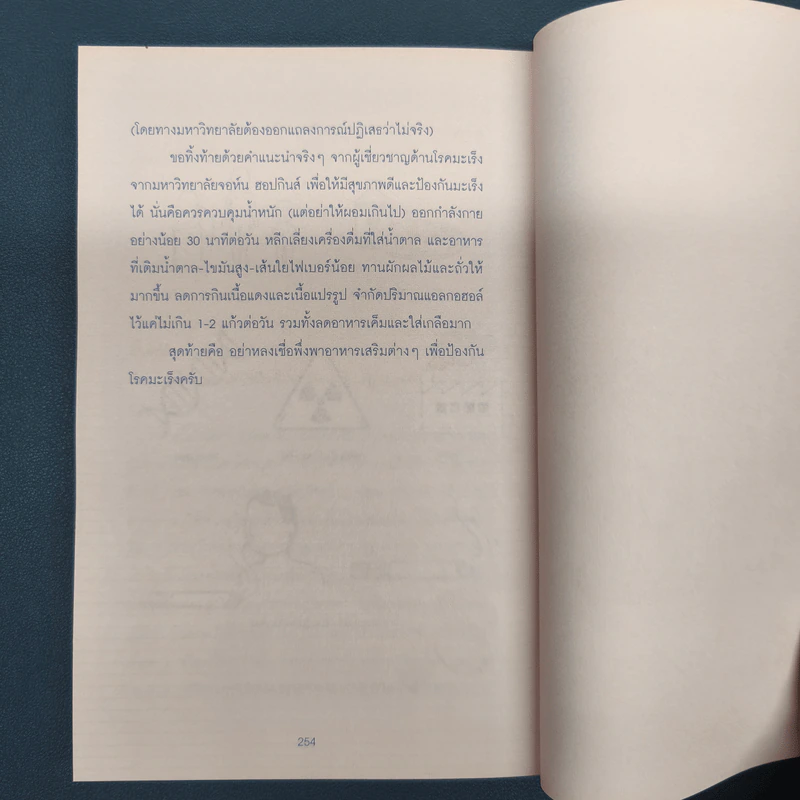 (โดยทางมหาวิทยาลัยต้องออกแถลงการณ์ปฏิเสธว่าไม่จริง)
ขอทิ้งท้ายด้วยคำแนะนำจริงๆ จากผู้เชี่ยวชาญด้านโรคมะเร็ง
จากมหาวิทยาลัยจอห์น ฮอปกินส์ เพื่อให้มีสุขภาพดีและป้องกันมะเร็ง
ได้ นั่นคือควรควบคุมน้ำหนัก (แต่อย่าให้ผอมเกินไป) ออกกำลังกาย
อย่างน้อย 30 นาทีต่อวัน หลีกเลี่ยงเครื่องดื่มที่ใส่น้ำตาล และอาหาร
ที่เติมน้ำตาล-ไขมันสูง-เส้นใยไฟเบอร์น้อย ทานผักผลไม้และถั่วให้
มากขึ้น ลดการกินเนื้อแดงและเนื้อแปรรูป จำกัดปริมาณแอลกอฮอล์
ไว้แค่ไม่เกิน 1-2 แก้วต่อวัน รวมทั้งลดอาหารเค็มและใส่เกลือมาก
สุดท้ายคือ อย่าหลงเชื่อพึ่งพาอาหารเสริมต่างๆ เพื่อป้องกัน
โรคมะเร็งครับ
254